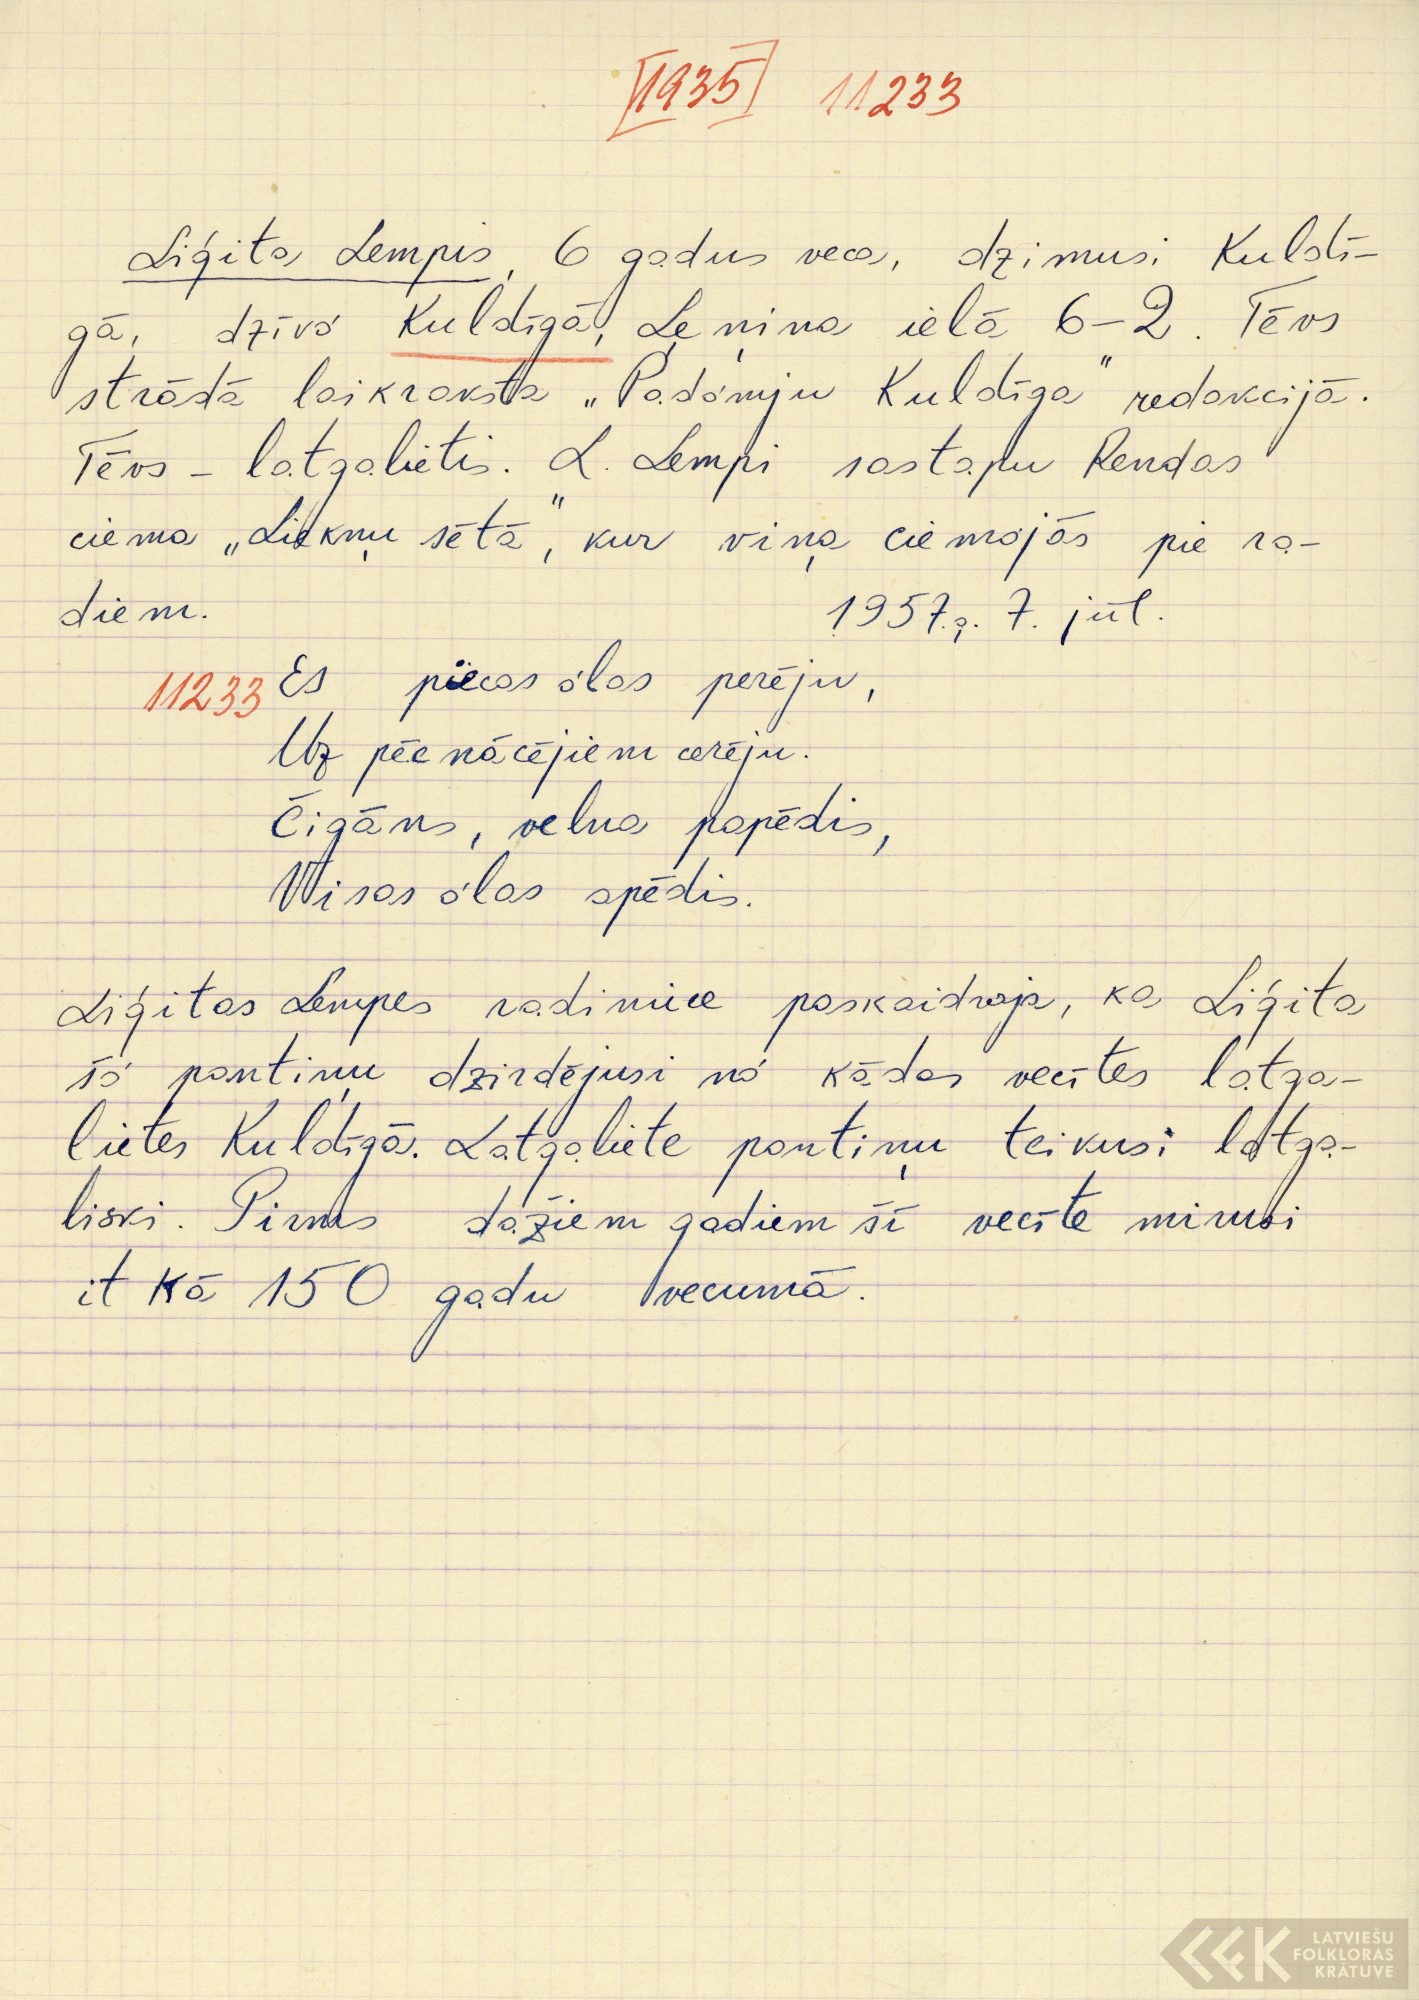 [1935] 11233
Liģita Lempis, 6 gadus veca, dzimusi Kuldī-
gā, dzīvo Kuldīgā, Ļeņina ielā 6-2. Tēvs
strādā laikraksta „Padomju Kuldīga" redakcijā.
Tēvs - latgalietis. L. Lempi sastapu Rendas
ciema „Lieknu sētā", kur viņa ciemojās pie ra-
diem. 1957.g. 7. jūl.
11233 Es piecas olas perēju,
Uz pēcnācējiem cerēju.
Čigāns, velna papēdis,
Visas olas apēdis.
Liģitas Lempes radiniece paskaidroja, ka Liģita
šo pantiņu dzirdējusi no kādas vecītes latga-
lietes Kuldīgā. Latgaliete pantiņu teikusi latga-
liski. Pirms dažiem gadiem šī vecīte mirusi
it kā 150 gadu vecumā.
LATVIEŠU
FOLKLORAS
KRĀTUVE